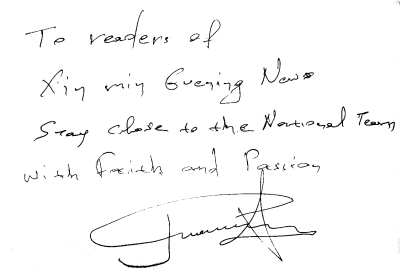 To readers of
Xin min Evening News
Stay close to the National Team
with Faith and Passion